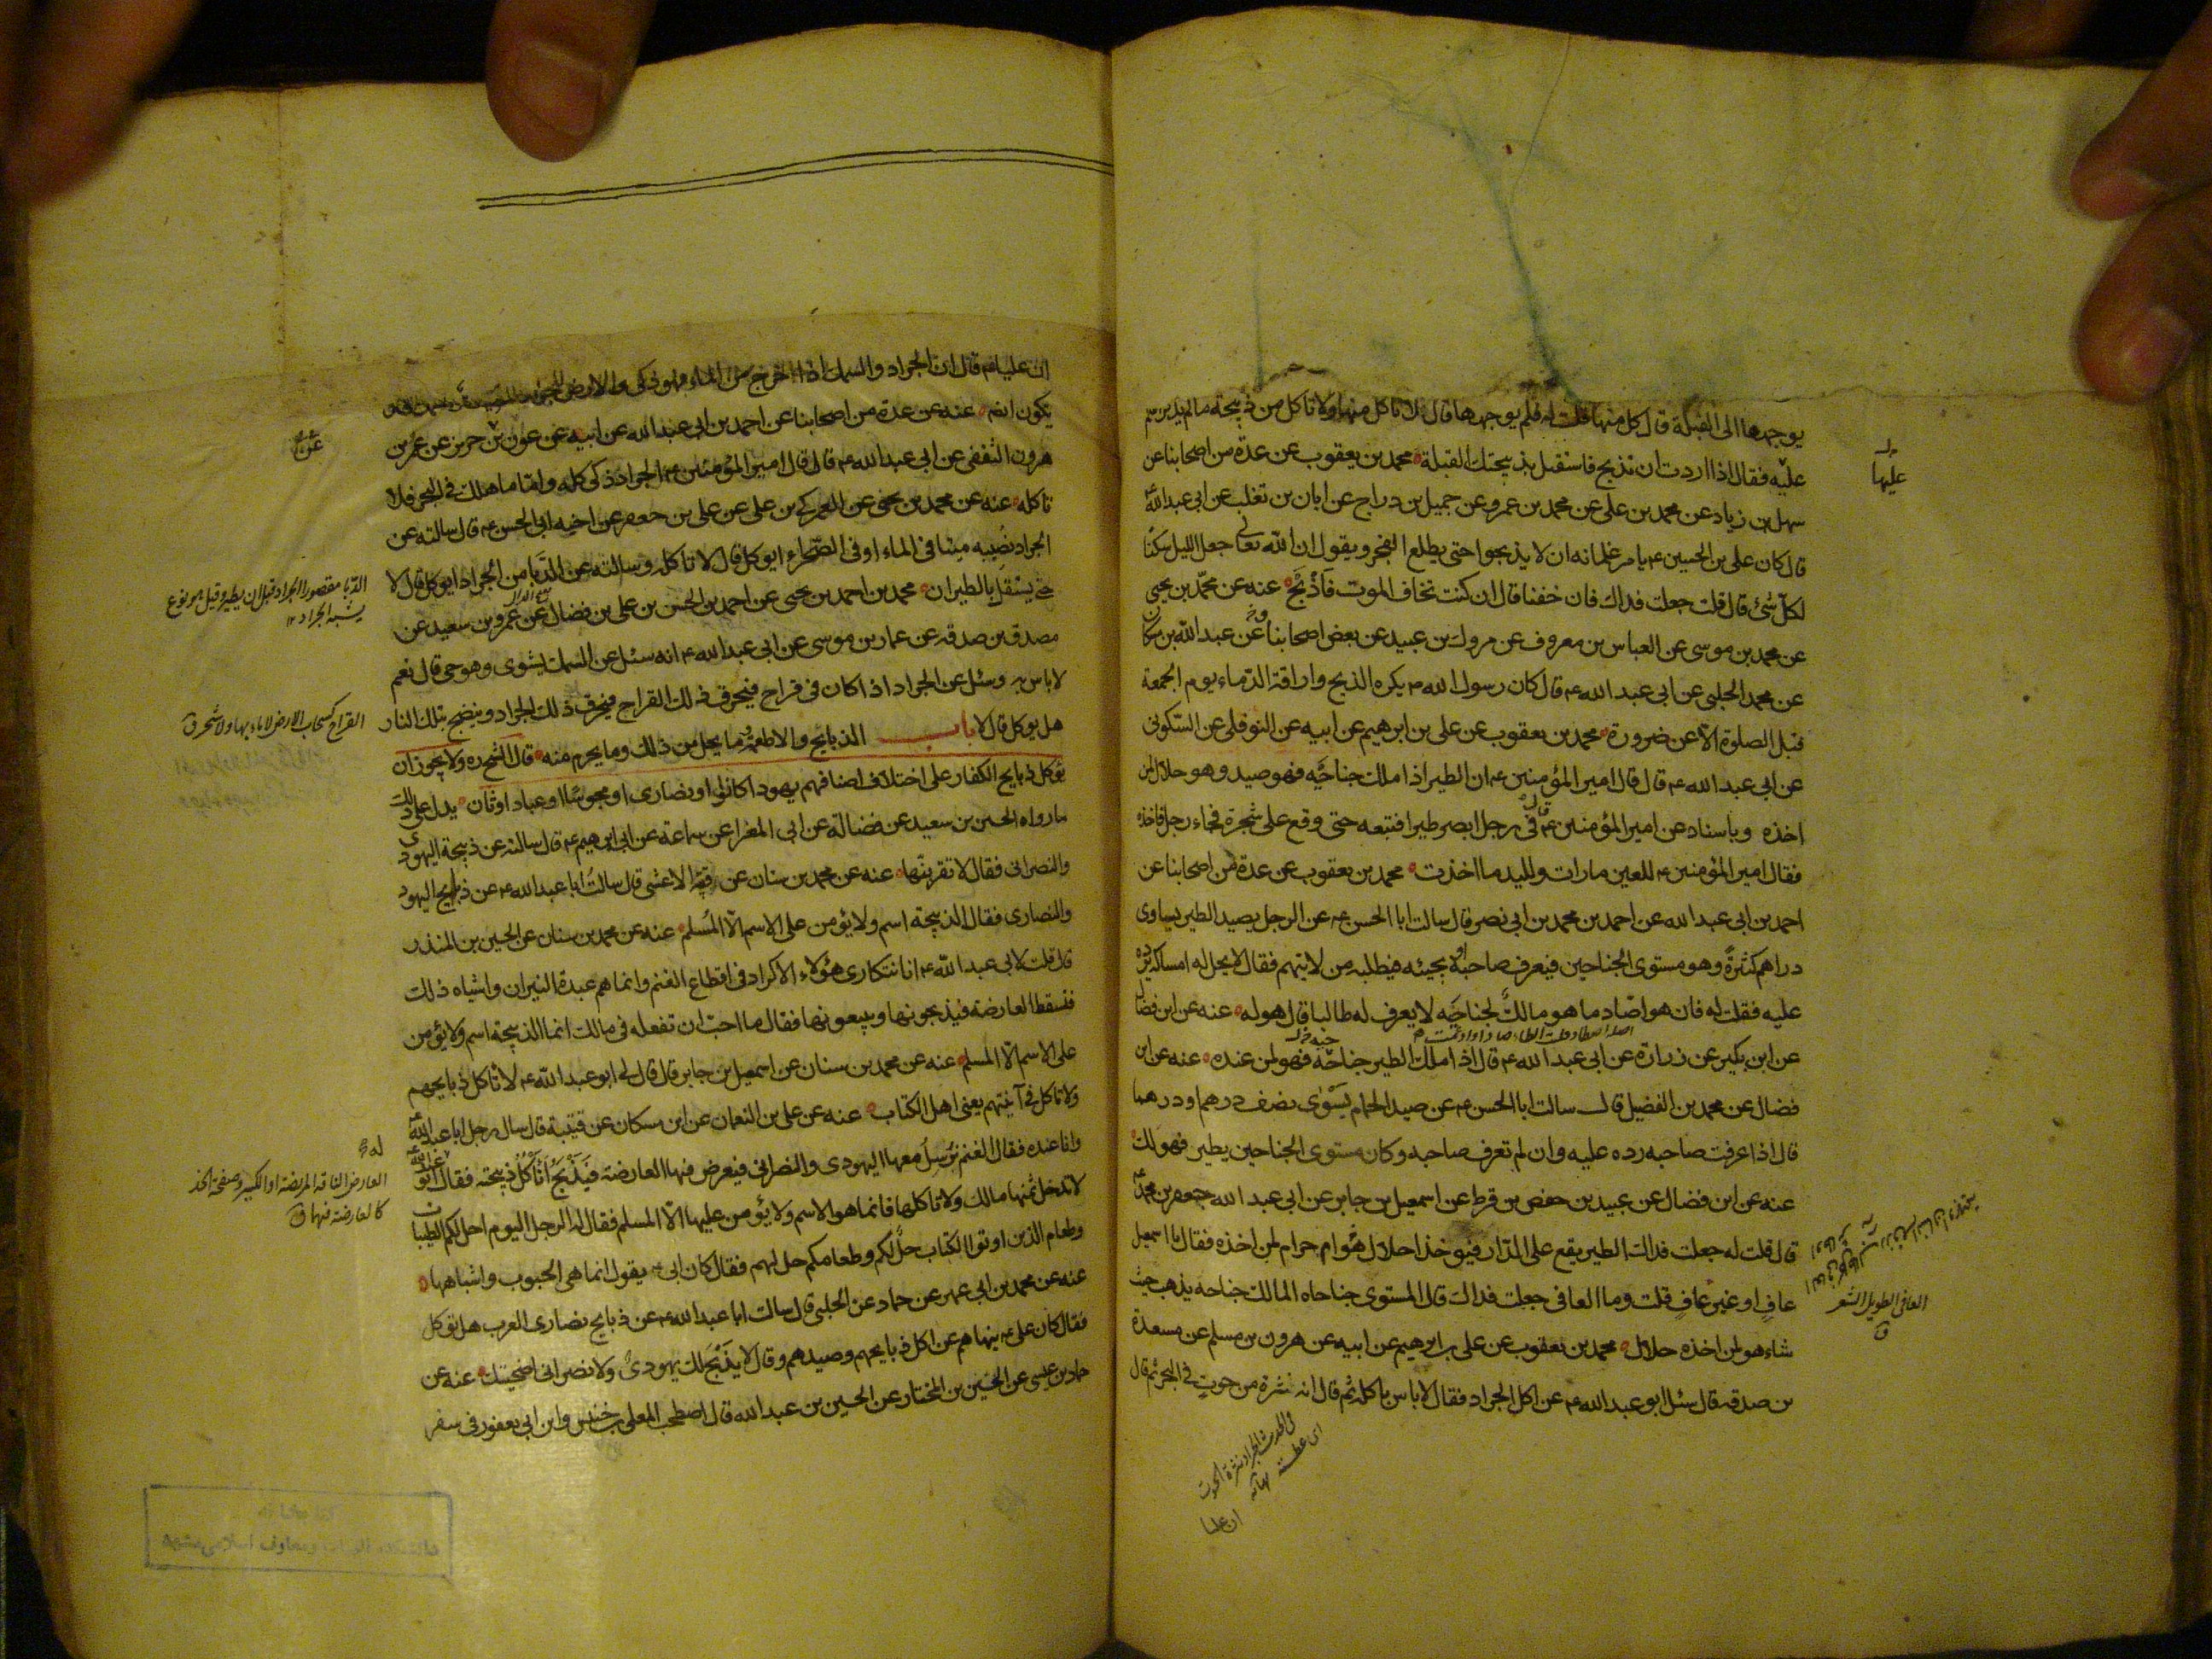 يوجهها الى القبلة قال كل منها قلت له فلم يوجهها قال لا تاكل منها ولا تاكل من ذبيحة ما لم يذكر اسم
عليه فقال اذا اردت ان تذبح فاستقبل بذبيحتك القبلة محمد بن يعقوب عن عدة من اصحابنا عن
سهل بن زياد عن محمد بن على عن محمد بن عمرو عن جميل بن دراج عن ابان بن تغلب عن ابى عبد الله ع
قال كان على بن الحسين ع يامر غلمانه ان لا يذبحوا حتى يطلع الفجر ويقول ان الله تعالى جعل الليل سكنا
لكل شئ قال قلت جعلت فداك فان خفنا قال ان كنت تخاف الموت فاذبح عنه عن محمد بن يحيى
عن محمد بن موسى عن العباس بن معروف عن مروك بن عبيد عن بعض اصحابنا عن عبد الله بن مسكان
عن محمد الحلبى عن ابى عبد الله ع قال كان رسول الله ص يكره الذبح واراقة الدماء يوم الجمعة
قبل الصلوة الا عن ضرورة محمد بن يعقوب عن على بن ابرهيم عن ابيه عن النوفلى عن السكونى
عن ابى عبد الله ع قال قال امير المؤمنين ع ان الطير اذا ملك جناحيه فهو صيد وهو حلال لمن
اخذه وباسناد عن امير المؤمنين ع قال فى رجل ابصر طيرا فتبعه حتى وقع على شجرة فجاء رجل فاخذه
فقال امير المؤمنين ع للعين ما رات ولليد ما اخذت محمد بن يعقوب عن عدة من اصحابنا عن
احمد بن ابى عبد الله عن احمد بن محمد بن ابى نصر قال سالت ابا الحسن ع عن الرجل يصيد الطير يساوى
دراهم كثيرة وهو مستوى الجناحين فيعرف صاحبه او يجيئه فيطلبه من لا يتهم فقال لا يحل له امساكه يرده
عليه فقلت له فان هو اصاد ما هو مالك لجناحيه لا يعرف له طالبا قال هو له عنه عن ابن فضال
عن ابن بكير عن زرارة عن ابى عبد الله ع قال اذا ملك الطير جناحه فهو لمن عنده عنه عن ابن
فضال عن محمد بن الفضيل قال سالت ابا الحسن ع عن صيد الحمام يسوى نصف درهم او درهما
قال اذا عرفت صاحبه رده عليه وان لم تعرف صاحبه وكان مستوى الجناحين يطير فهو لك
عنه عن ابن فضال عن عبيد بن حفص بن قرط عن اسمعيل بن جابر عن ابى عبد الله جعفر بن محمد ع
قال قلت له جعلت فداك الطير يقع على الدار فيوخذ احلال هو ام حرام لمن اخذه فقال يا اسمعيل
عاف او غير عاف قلت وما العافى جعلت فداك قال المستوى جناحاه المالك جناحه يذهب حيث
شاء هو لمن اخذه حلال محمد بن يعقوب عن على بن ابرهيم عن ابيه عن هرون بن مسلم عن مسعدة
بن صدقه قال سئل ابو عبد الله ع عن اكل الجراد فقال لا باس باكله ثم قال انه نثرة من حوت فى البحر ثم قال
عليها
العافى الطويل الشعر
ق
فى الحديث الجراد نثرة الحوت
اى عطسته نهايه
ان عليا
ان عليا ع قال ان الجراد والسمك اذا اخرج من الماء فهو ذكى والارض للجراد
يكون ايضا عنه عن عدة من اصحابنا عن احمد بن ابى عبد الله عن ابيه عن عون بن حريز عن عمر بن
هرون الثقفى عن ابى عبد الله ع قال قال امير المؤمنين ع الجراد ذكى كله واما ما هلك فى البحر فلا
تاكله عنه عن محمد بن يحيى عن العمركى بن على عن على بن جعفر عن اخيه ابى الحسن ع قال سالته عن
الجراد نصيبه ميتا فى الماء او فى الصحراء ايوكل قال لا تاكله وسالته عن الدبا من الجراد ايوكل قال لا
حتى يستقل بالطيران محمد بن احمد بن يحيى عن احمد بن الحسن بن على بن فضال عن عمرو بن سعيد عن
مصدق بن صدقه عن عمار بن موسى عن ابى عبد الله ع انه سئل عن السمك يشوى وهو حى قال نعم
لا باس به وسئل عن الجراد اذا كان فى قراح فيحرق ذلك القراح فيحرق ذلك الجراد وينضج بتلك النار
هل يوكل قال لا باب الذبايح والاطعمة وما يحل من ذلك وما يحرم منه قال الشيخ ره ولا يجوز ان
يؤكل ذبايح الكفار على اختلاف اصنافهم يهودا كانوا او نصارى او مجوسا او عباد اوثان يدل على ذلك
ما رواه الحسين بن سعيد عن فضالة عن ابى المغرا عن سماعة عن ابى ابرهيم ع قال سالته عن ذبيحة اليهودى
والنصرانى فقال لا تقربنها عنه عن محمد بن سنان عن قتيبة الاعشى قال سالت ابا عبد الله ع عن ذبايح اليهود
والنصارى فقال الذبيحة اسم ولا يؤمن على الاسم الا المسلم عنه عن محمد بن سنان عن الحسين بن المنذر
قال قلت لابى عبد الله ع انا نتكارى هؤلاء الاكراد فى اقطاع الغنم وانما هم عبدة النيران واشباه ذلك
فتسقط العارضة فيذبحونها ويبيعونها فقال ما احب ان تفعله فى مالك انما الذبيحة اسم ولا يؤمن
على الاسم الا المسلم عنه عن محمد بن سنان عن اسمعيل بن جابر قال قال لى ابو عبد الله ع لا تاكل ذبايحهم
ولا تاكل فى آنيتهم يعنى اهل الكتاب عنه عن على بن النعمان عن ابن مسكان عن قتيبة قال سال رجل ابا عبد الله ع
وانا عنده فقال الغنم نرسل معها اليهودى والنصرانى فيعرض فيها العارضة فيذبح اناكل ذبيحته فقال ابو عبد الله ع
لا تدخل ثمنها مالك ولا تاكلها فانما هو الاسم ولا يؤمن عليها الا المسلم فقال له الرجل اليوم احل لكم الطيبات
وطعام الذين اوتوا الكتاب حل لكم وطعامكم حل لهم فقال كان ابى ع يقول انما هى الحبوب واشباهها
عنه عن محمد بن ابى عمير عن حماد عن الحلبى قال سالت ابا عبد الله ع عن ذبايح نصارى العرب هل توكل
فقال كان على ع ينهاهم عن اكل ذبايحهم وصيدهم وقال لا يذبح لك يهودى ولا نصرانى اضحيتك عنه عن
حماد بن عيسى عن الحسين بن المختار عن الحسين بن عبد الله قال اصطحب المعلى بن خنيس وابن ابى يعفور فى سفر
عن
الدبا مقصورا الجراد قبل ان يطير وقيل هو نوع
يشبه الجراد
القراح كسحاب الارض لا ماء بها ولا شجر ق
العارض الناقة المريضة او الكسير وصفحة الخد
كالعارضة فيهما ق